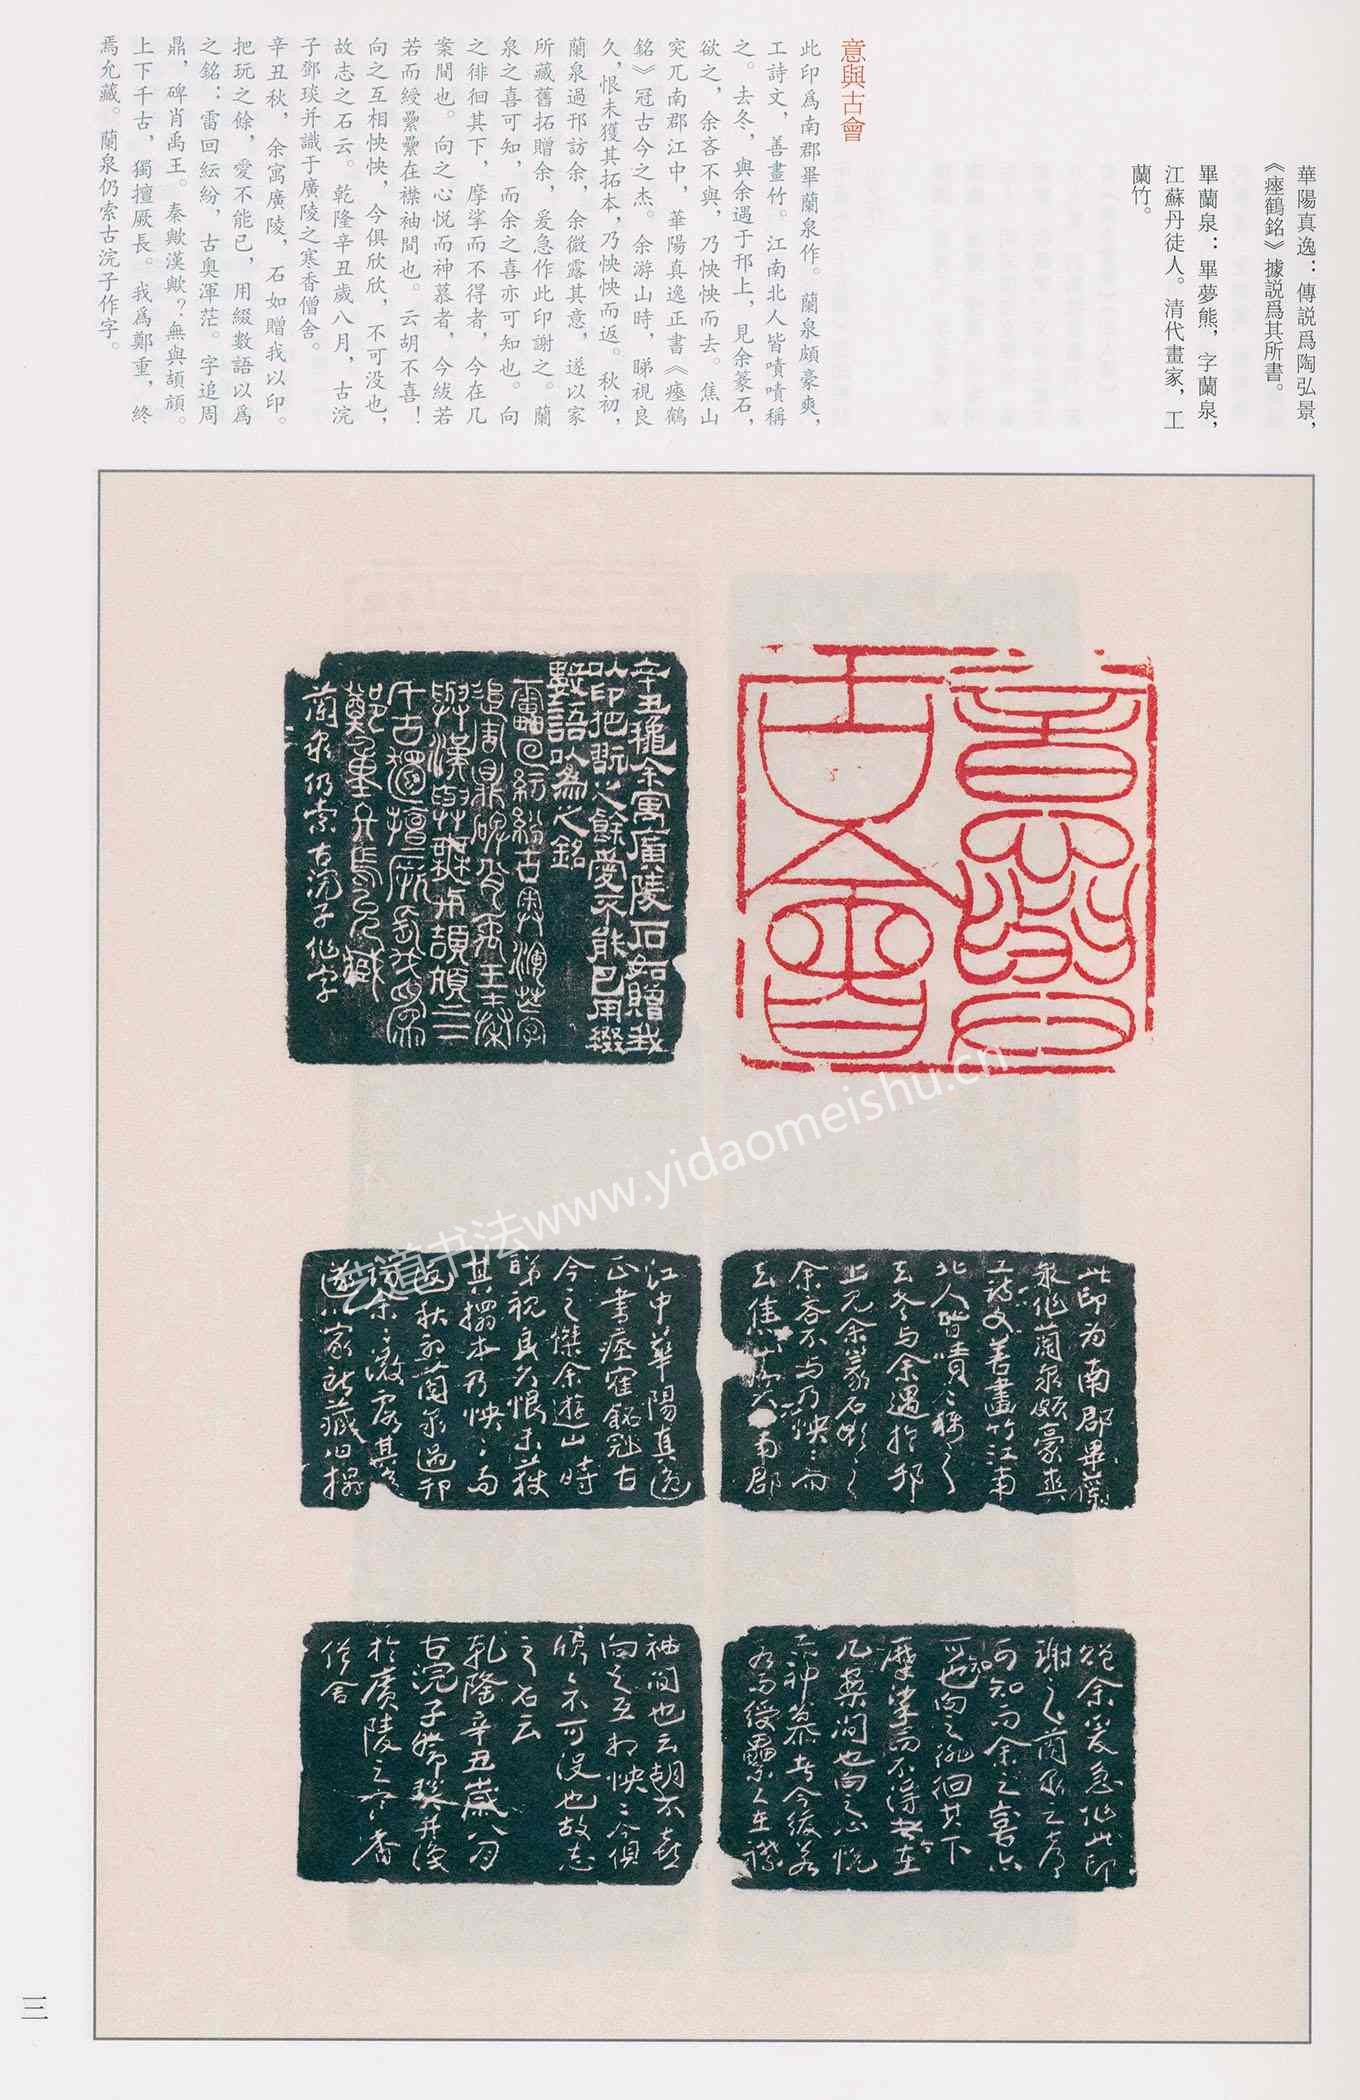 華陽真逸：傳説爲陶弘景，
《瘞鶴銘》據説爲其所書。
畢蘭泉：畢夢熊，字蘭泉，
江蘇丹徒人。清代畫家，工
蘭竹。
意與古會
此印爲南郡畢蘭泉作。蘭泉頗豪爽，
工詩文，善畫竹。江南北人皆嘖嘖稱
之。去冬，與余遇于邗上，見余篆石，
欲之，余吝不與，乃怏怏而去。焦山
突兀南郡江中，華陽真逸正書《瘞鶴
銘》冠古今之杰。余游山時，睇視良
久，恨未獲其拓本，乃怏怏而返。秋初，
蘭泉過邗訪余，余微露其意，遂以家
所藏舊拓贈余，爰急作此印謝之。蘭
泉之喜可知，而余之喜亦可知也。向
之徘徊其下，摩挲而不得者，今在几
案間也。向之心悦而神慕者，今紱若
若而綬纍纍在襟袖間也。云胡不喜！
向之互相怏怏，今俱欣欣，不可没也，
故志之石云。乾隆辛丑歲八月，古浣
子鄧琰并識于廣陵之寒香僧舍。
辛丑秋，余寓廣陵，石如贈我以印。
把玩之餘，愛不能已，用綴數語以爲
之銘：雷回紜紛，古奥渾茫。字追周
鼎，碑肖禹王。秦歟漢歟？無與頡頏。
上下千古，獨擅厥長。我爲鄭重，終
焉允藏。蘭泉仍索古浣子作字。
意與
古會
辛丑穐余寓廣陵石如贈我
以印把翫之餘愛不能已用綴
數語以爲之銘
雷回紜紛古奥渾茫字
追周鼎碑肖禹王秦
歟漢歟無與頡頏上下
千古獨擅厥長我爲
鄭重終焉允藏
蘭泉仍索古浣子作字
此印为南郡畢蘭
泉作蘭泉頗豪爽
工詩文善畫竹江南
北人皆嘖〻稱之
去冬与余遇於邗
上見余篆石欲之
余吝不与乃怏〻而
去焦山突兀南郡
江中華陽真逸
正書瘞鶴銘冠古
今之傑余遊山時
睇視良久恨未獲
其搨本乃怏〻而
返秋初蘭泉過邗
訪余〻微露其意
遂以家所藏旧搨
贈余爰急作此印
謝之蘭泉之喜
可知而余之喜亦
可知也向之徘徊其下
摩挲而不得者今在
几案間也向之心悦
而神慕者今紱若
若而綬纍〻在襟
袖間也云胡不喜
向之互相怏〻今俱
欣〻不可没也故志
之石云
乾隆辛丑歲八月
古浣子鄧琰并識
於廣陵之寒香
僧舍
艺道书法www.yidaomeishu.cn
三